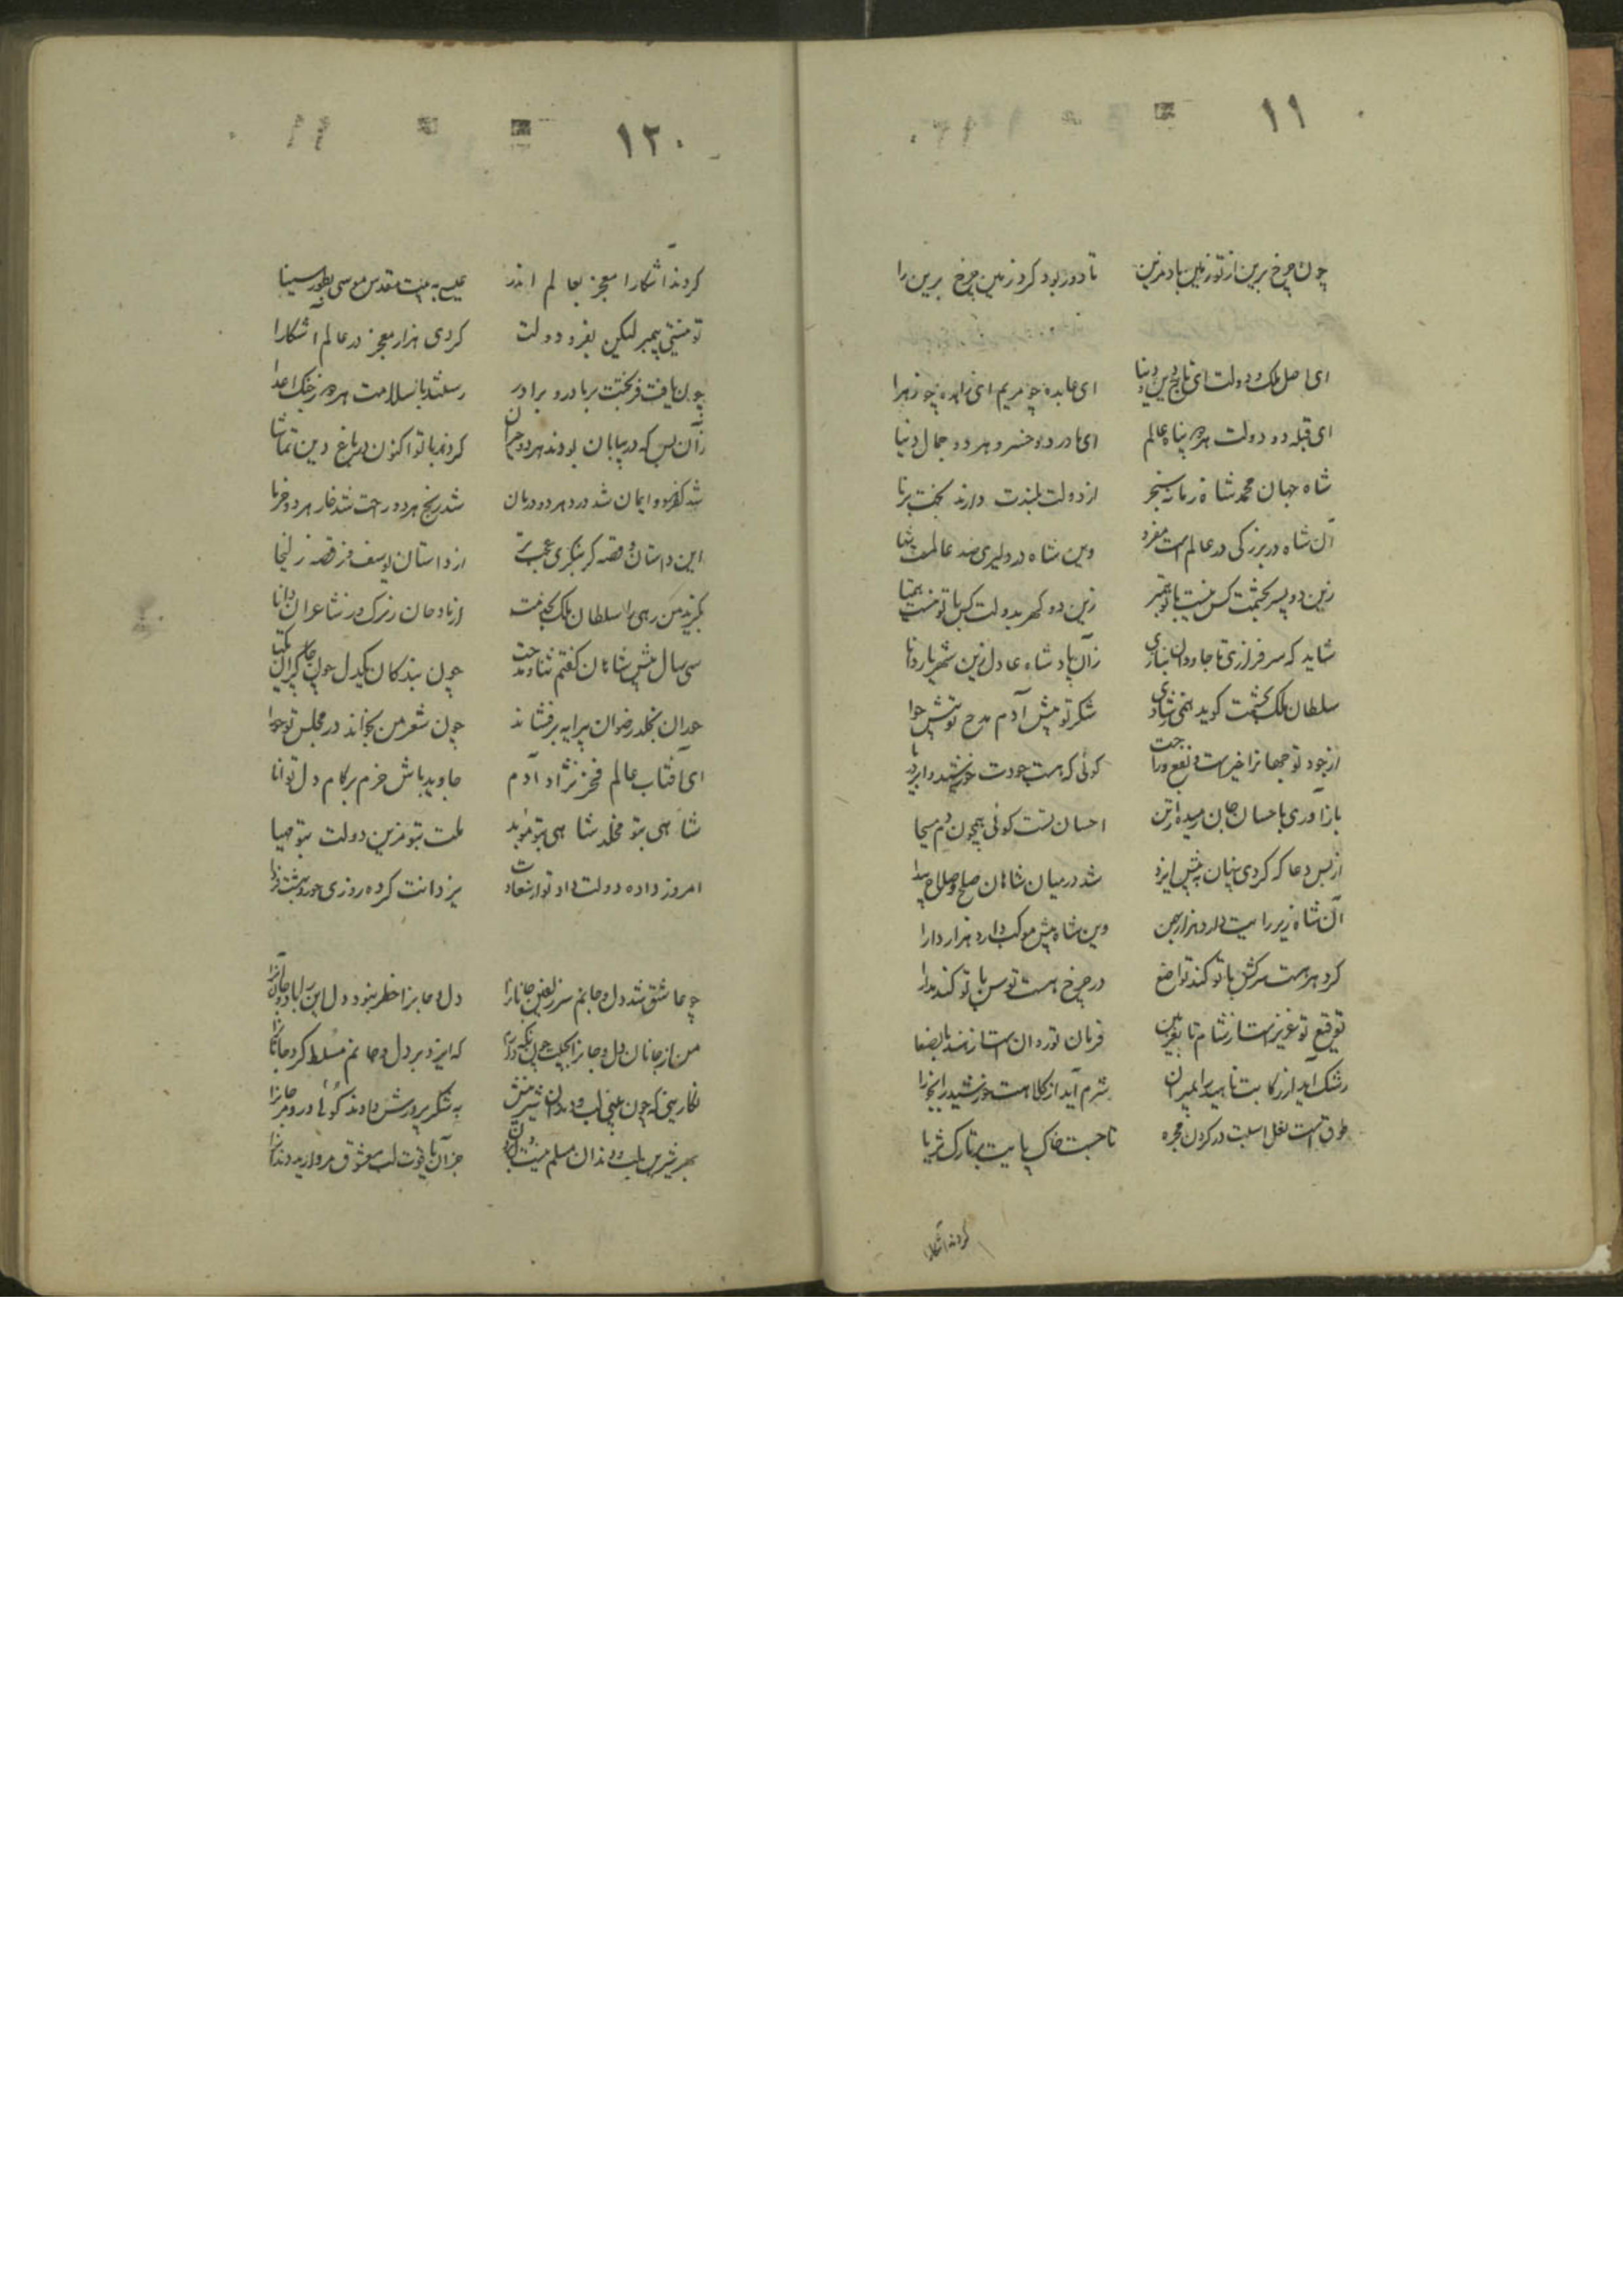 ١١
چون چرخ برین از تو زمین باد مزین تا دور بود کرد زمین چرخ برین را
ای اصل ملک و دولت ای تاج دین و دنیا ای عابده چو مریم ای زاهده چو زهرا
ای قبله دو دولت هر دو پناه عالم ای مادر دو خسرو هر دو جمال دنیا
شاه جهان محمد شاه زمانه سنجر از دولت بلندت دارند بخت برنا
آن شاه در بزرگی در عالم است مفرد وین شاه در دلیری صد عالمست تنها
زین دو پسر بحشمت کس نیست با تو همبر زین دو گهر بدولت کس با تو نیست همتا
شاید که سرفرازی تا جاودان بنازی زان پادشاه عادل زین شهریار دانا
سلطان ملک بحشمت گوید همی شادی شکر تو پیش آدم مدح تو پیش حوا
از جود تو جهانرا خیرست و نفع و راحت گوئی که هست جودت خورشید و ابر و دریا
باز آوری باحسان جان رمیده از تن احسان تست گوئی همچون دم مسیحا
از بس دعا که کردی پنهان به پیش ایزد شد در میان شاهان صلح و صلاح پیدا
آن شاه زیر رایت دارد هزار بهمن وین شاه پیش موکب دارد هزار دارا
گر دهر هست سرکش با تو کند تواضع ور چرخ هست توسن با تو کند مدارا
توقیع تو عزیزست از شام تا بغزنین فرمان تو روان است از هند تا بصنعا
رشک آید از رکابت ناهید را بمیزان شرم آید از کلاهت خورشید را بجوزا
طوق است نعل اسبت در گردن مجره تاجست خاک پایت بر تارک ثریا
کردند آشکارا
١٢٠
کردند آشکارا معجز بعالم اندر عیسی به بیت مقدس موسی بطور سینا
تو نیستی پیمبر لیکن بفر و دولت کردی هزار معجز در عالم آشکارا
چون یافت فر بختت بر مادر و برادر رستند با سلامت هر دو ز جنگ اعدا
زان پس که در بیابان بودند هر دو حیران کردند با تو اکنون در باغ دین تماشا
شد کفر هر دو ایمان شد درد هر دو درمان شد رنج هر دو راحت شد خار هر دو خرما
این داستان و قصه گر بنگری عجب‌تر از داستان یوسف وز قصه زلیخا
بگزید من رهی را سلطان ملک بخدمت از مادحان زیرک وز شاعران دانا
سی سال پیش شاهان گفتم ثنا و مدحت چون بندگان یکدل چون چاکران یکتا
حوران بخلد رضوان پیرایه برفشانند چون شعر من بخوانند در مجلس تو حورا
ای آفتاب عالم فخر نژاد آدم جاوید باش خرم بر کام دل توانا
شاهی بتو مخلد شاهی بتو مؤید ملت بتو مزین دولت بتو مهیا
امروز داده دولت داد تو از سعادت یزدانت کرده روزی حور و بهشت فردا
چو عاشق شد دل و جانم سر زلفین جانانرا دل و جانرا خطر نبود دل این را باد و جان آنرا
من از جانان دل و جانرا بحیلت چون نگه دارم که ایزد بر دل و جانم مسلط کرد جانانرا
نگارینی که چون بینی لب و دندان شیرینش به شکر پرورش دادند گوئی در و مرجانرا
بهر شیرین لب و دندان مسلم نیست دل بردن جز آن یاقوت لب معشوق مروارید دندانرا